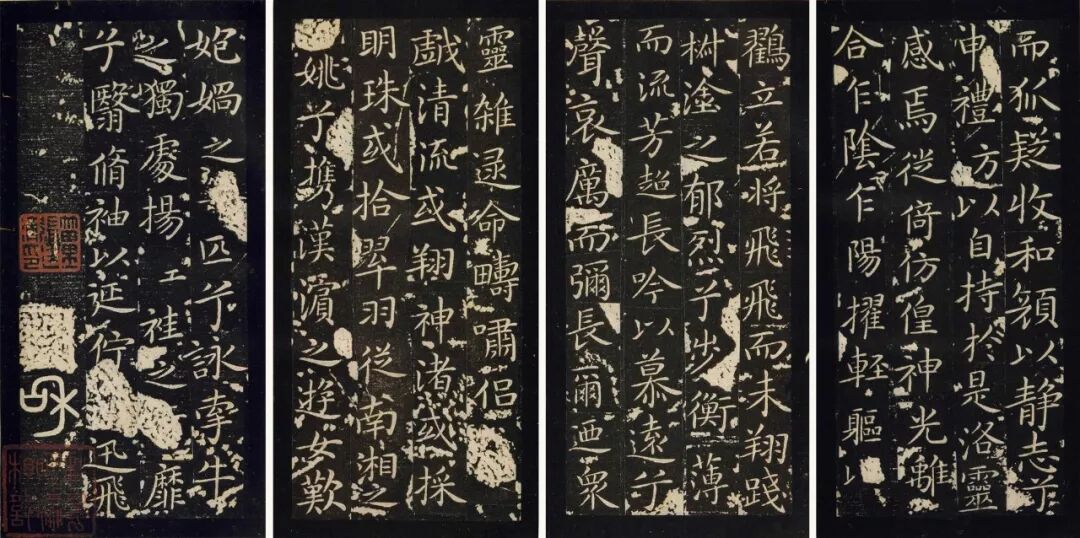 而狐疑收和顏以靜志兮
申禮方以自持於是洛靈
感焉徙倚仿偟神光離
合乍陰乍陽擢輕軀以
鸖立若將飛飛而未翔踐
椒塗之郁烈兮步衡薄
而流芳超長吟以慕遠兮
聲哀厲而彌長爾迺衆
靈雜遝命疇嘯侶
戲清流或翔神渚或採
明珠或拾翠羽從南湘之
姚兮攜漢濱之遊女歎
媧之匹兮詠牽牛
之獨處揚袿之靡
兮翳脩袖以延佇迅飛